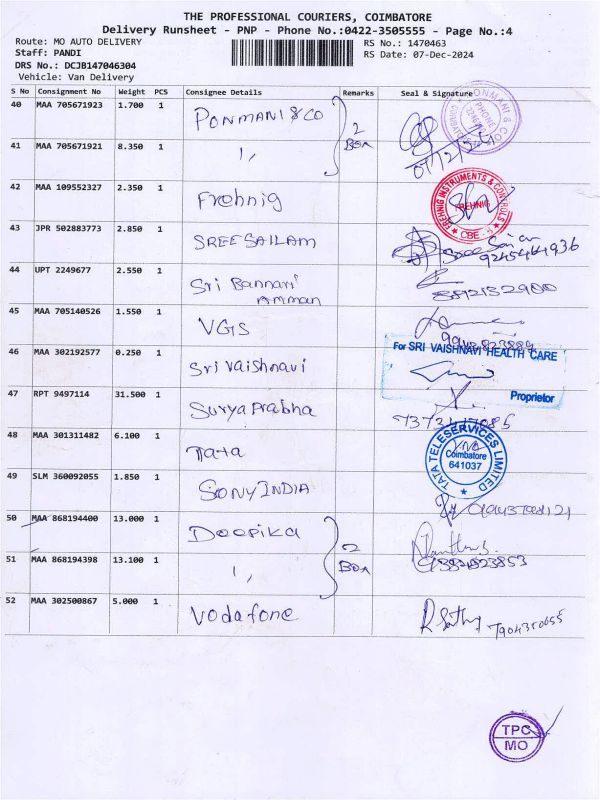 THE PROFESSIONAL COURIERS, COIMBATORE
Delivery Runsheet - PNP - Phone No.:0422-3505555 - Page No.:4
Route: MO AUTO DELIVERY
RS No.: 1470463
Staff: PANDI
RS Date: 07-Dec-2024
DRS No.: DCJB147046304
Vehicle: Van Delivery
S No Consignment No Weight PCS Consignee Details Remarks Seal & Signature
40 MAA 705671923 1.700 1 PONMANI & CO 2 BOX
PONMANI & CO
PHONE
COIMBATORE
41 MAA 705671921 8.350 1 ",
07/12/24
42 MAA 109552327 2.350 1 Frehnig
FREHNIG INSTRUMENTS & CONTROLS
FREHNIG
CBE
43 JPR 502883773 2.850 1 SREESAILAM
9245464936
44 UPT 2249677 2.550 1 Sri Bannari
Amman
45 MAA 705140526 1.550 1 VGS
46 MAA 302192577 0.250 1 Sri Vaishnavi
For SRI VAISHNAVI HEALTH CARE
Proprietor
47 RPT 9497114 31.500 1 Surya Prabha
48 MAA 301311482 6.100 1 Tata
TATA TELESERVICES LIMITED
Coimbatore
641037
49 SLM 360092055 1.850 1 SONY INDIA
50 MAA 868194400 13.000 1 Deepika 2 BOX
51 MAA 868194398 13.100 1 ",
52 MAA 302500867 5.000 1 Vodafone
TPC
MO